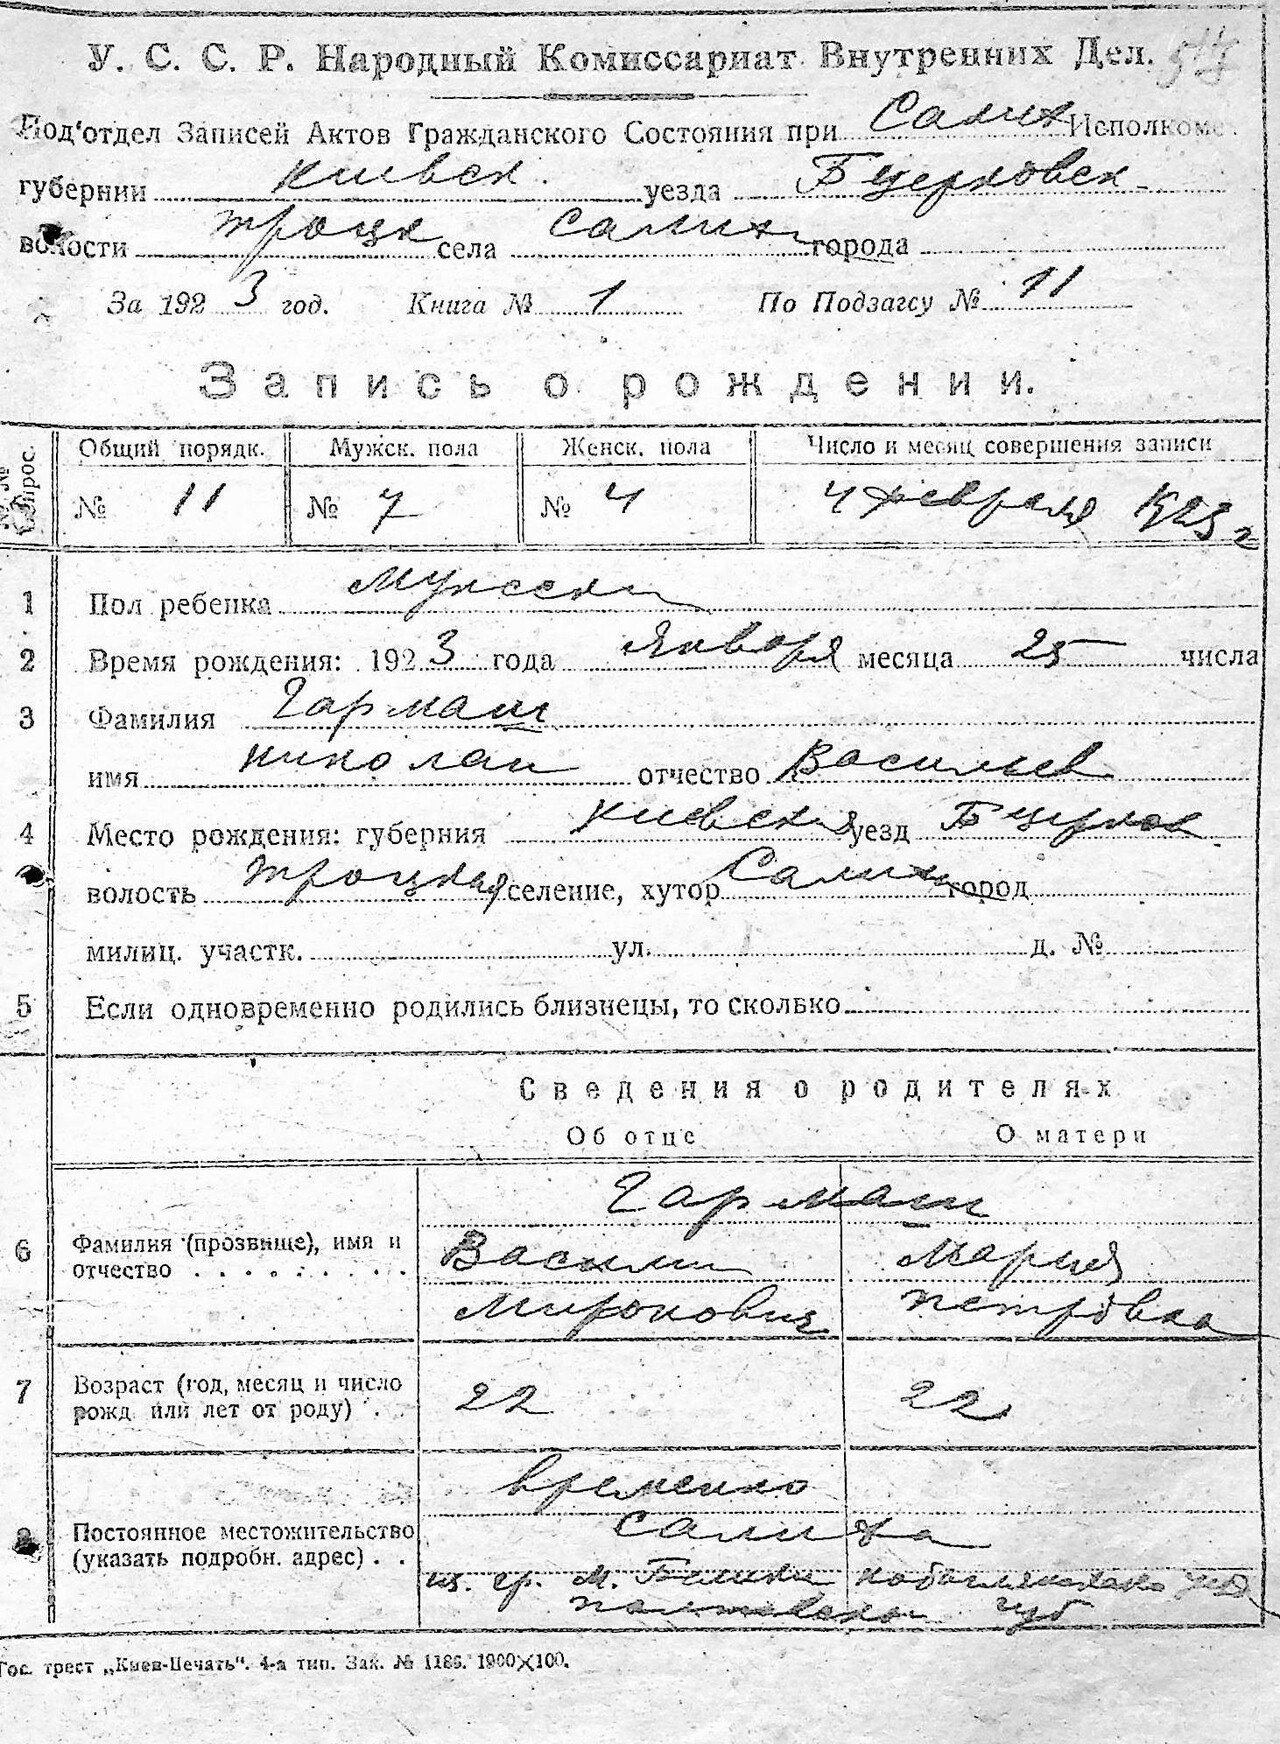 У. С. С. Р. Народный Комиссариат Внутренних Дел.
Под'отдел Записей Актов Гражданского Состояния при Салих Исполкоме
губернии Киевск. уезда Бцерковск
волости Троцк села Салих города
За 1923 год. Книга № 1 По Подзагсу № 11
Запись о рождении.
Общий порядк. Мужск. пола Женск. пола Число и месяц совершения записи
№ 11 № 7 № 4 4 февраля 1923 г
1 Пол ребенка Мужски
2 Время рождения: 1923 года Января месяца 25 числа
3 Фамилия Гармаш
имя Николай отчество Васильев
4 Место рождения: губерния Киевская уезд Бцерков
волость Троцкая селение, хутор Салиха город
милиц. участк. ул. д. №
5 Если одновременно родились близнецы, то сколько
Сведения о родителях
Об отце О матери
Гармаш
6 Фамилия (прозвище), имя и отчество Василий Мария
Миронович Петровна
7 Возраст (год, месяц и число рожд. или лет от роду) 22 22
временно
8 Постоянное местожительство (указать подробн. адрес) Салиха
из гр. м. Белики Кобелякского уез
Полтавской губ
Гос. трест „Киев-Печать“. 4-а тип. Зак. № 1186. 1900×100.